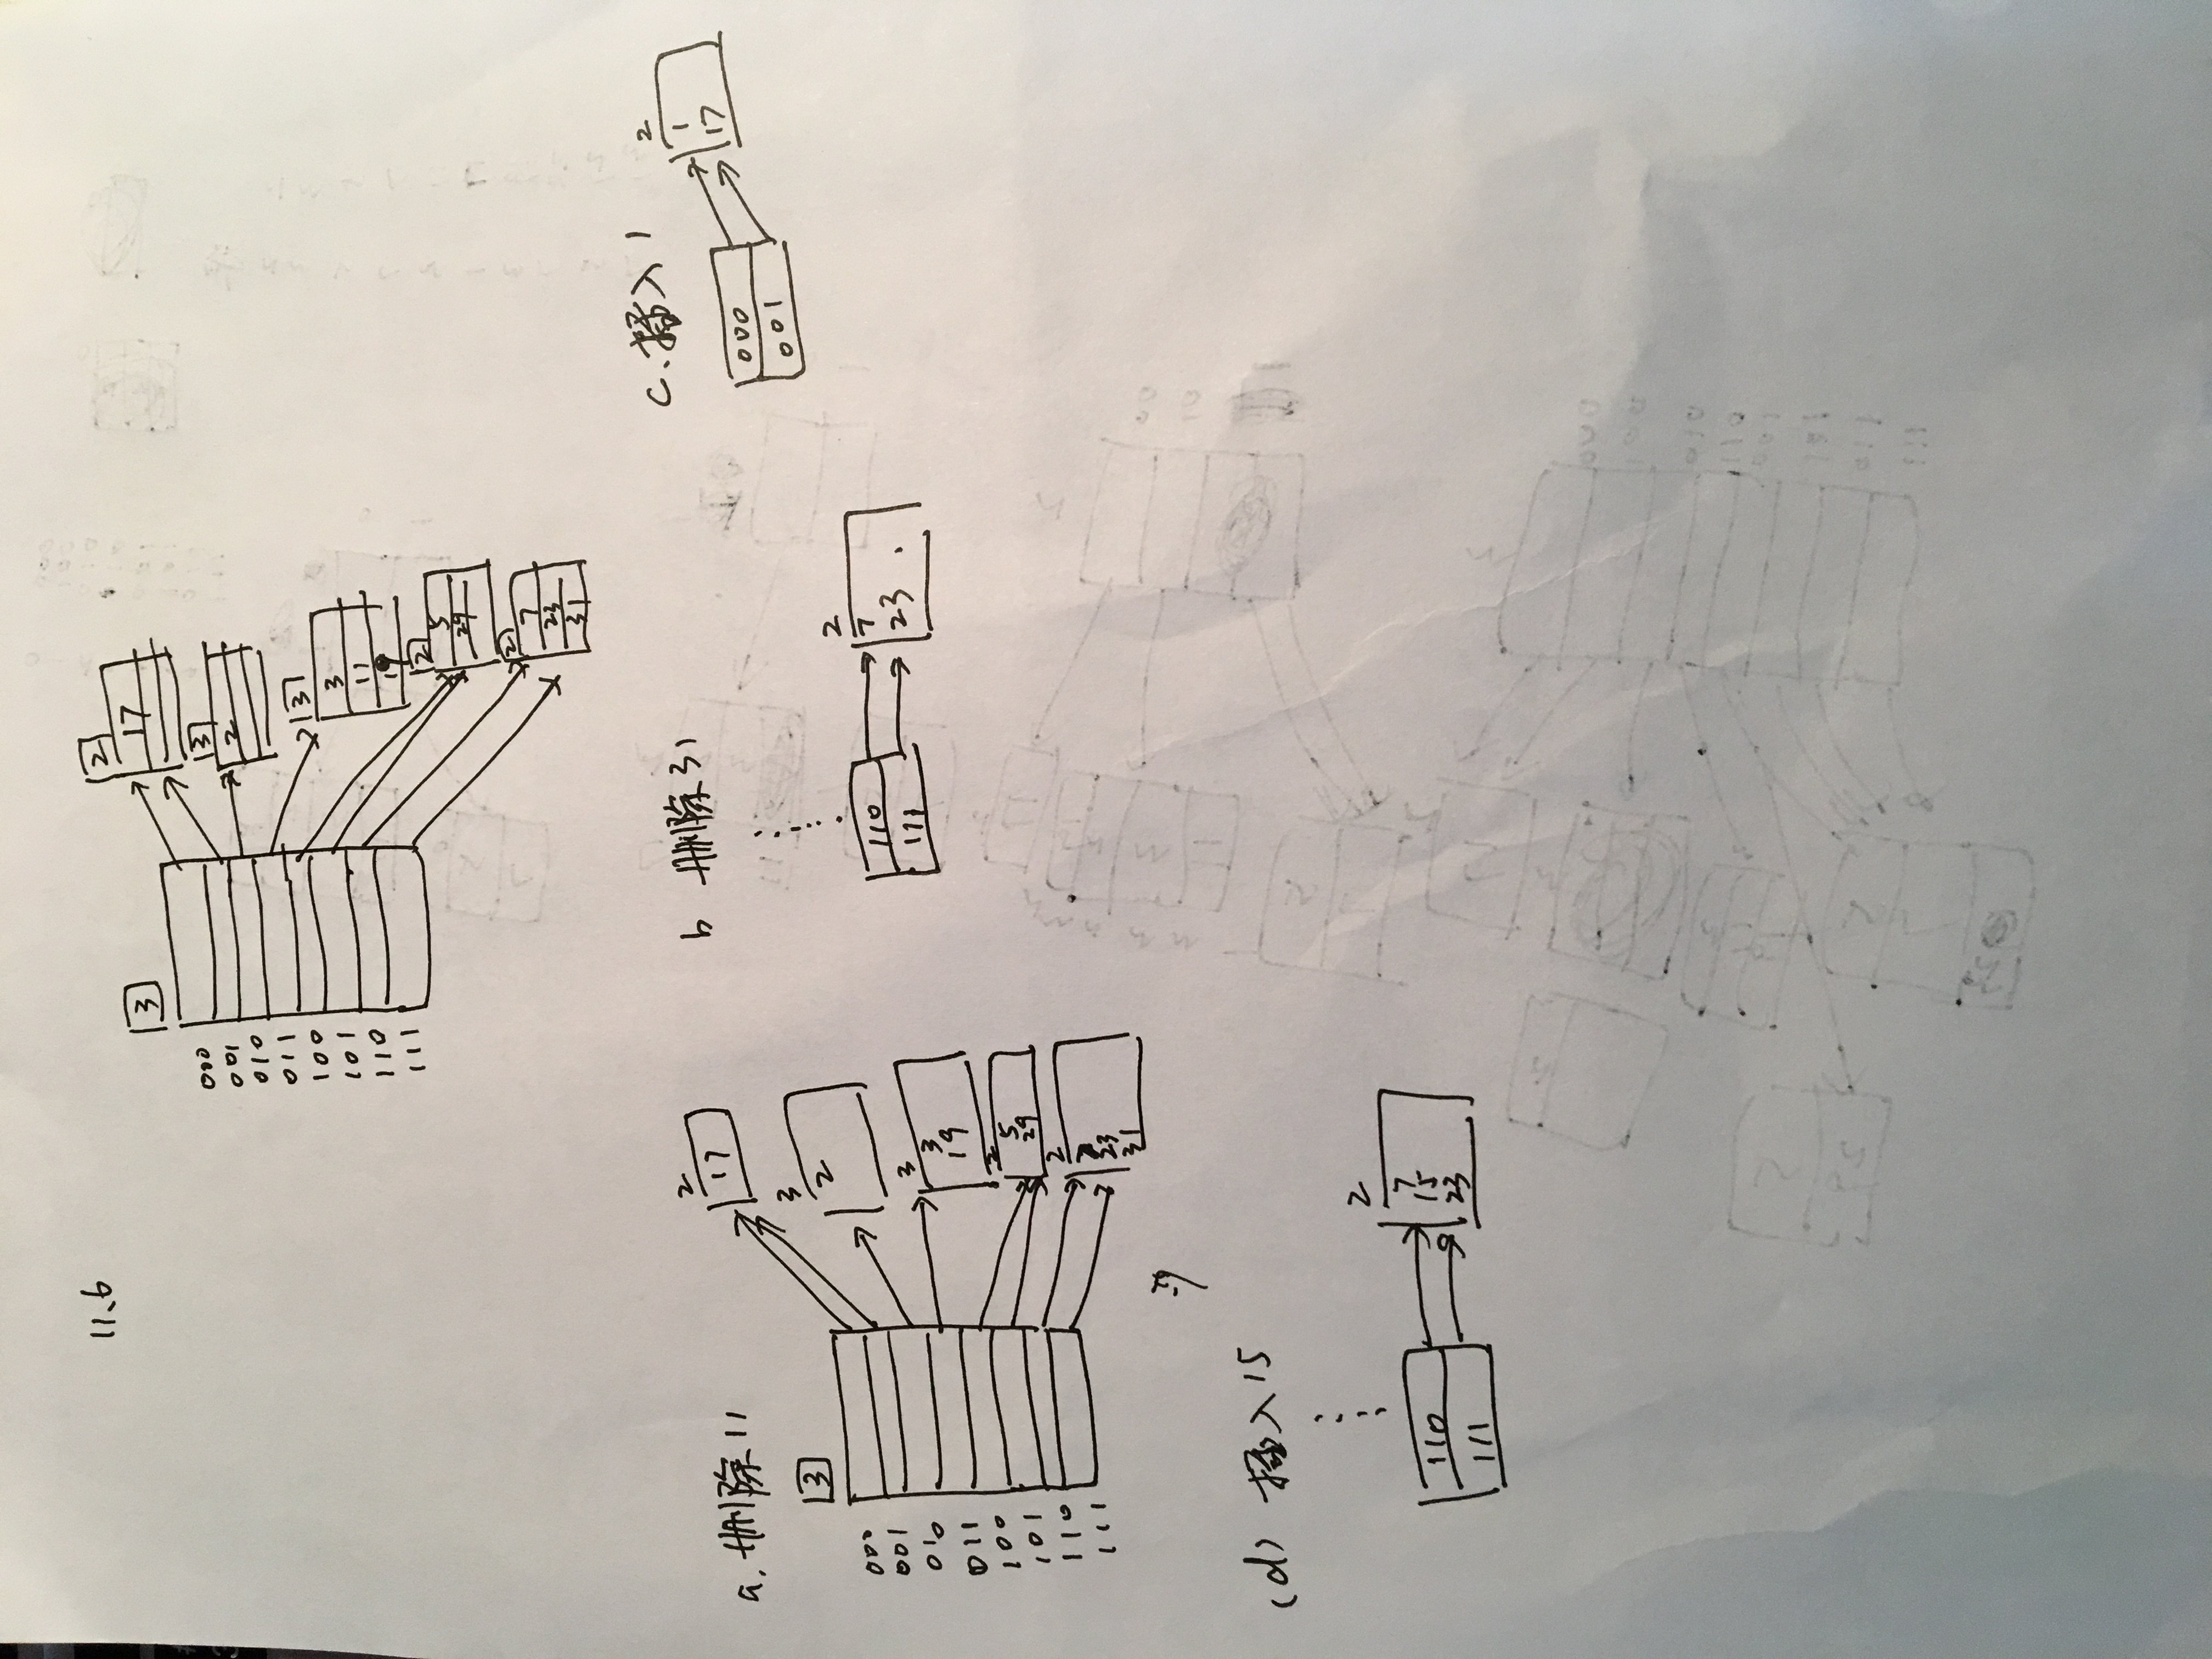 11.6
3
000
001
010
011
100
101
110
111
2
17
3
2
3
3
11
19
2
5
29
2
7
23
31
a. 删除11
3
000
001
010
011
100
101
110
111
2
17
3
2
3
3
19
2
5
29
2
7
23
31
b 删除31
110
111
2
7
23
c. 插入1
000
001
2
1
17
(d) 插入15
110
111
2
7
15
23